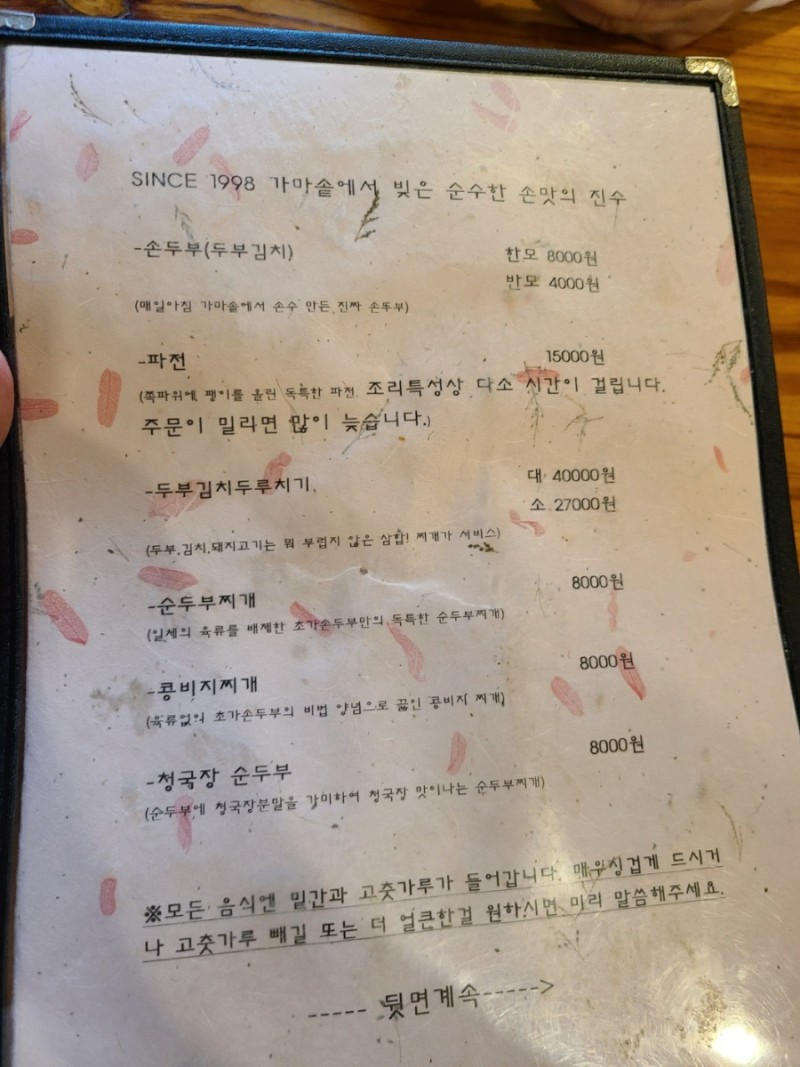 SINCE 1998 가마솥에서 빚은 순수한 손맛의 진수
-손두부(두부김치) 한모 8000원
반모 4000원
(매일아침 가마솥에서 손수 만든 진짜 손두부)
-파전 15000원
(쪽파위에 팽이를 올린 독특한 파전 조리특성상 다소 시간이 걸립니다.
주문이 밀리면 많이 늦습니다.)
-두부김치두루치기. 대 40000원
소 27000원
(두부,김치,돼지고기는 뭐 부럽지 않은 삼합! 찌개가 서비스)
-순두부찌개 8000원
(일체의 육류를 배제한 초가손두부만의 독특한 순두부찌개)
-콩비지찌개 8000원
(육류없이 초가손두부의 비법 양념으로 끓인 콩비지 찌개)
-청국장 순두부 8000원
(순두부에 청국장분말을 가미하여 청국장 맛이나는 순두부찌개)
※모든 음식엔 밑간과 고춧가루가 들어갑니다. 매우싱겁게 드시거
나 고춧가루 빼길 또는 더 얼큰한걸 원하시면 미리 말씀해주세요.
----- 뒷면계속----->